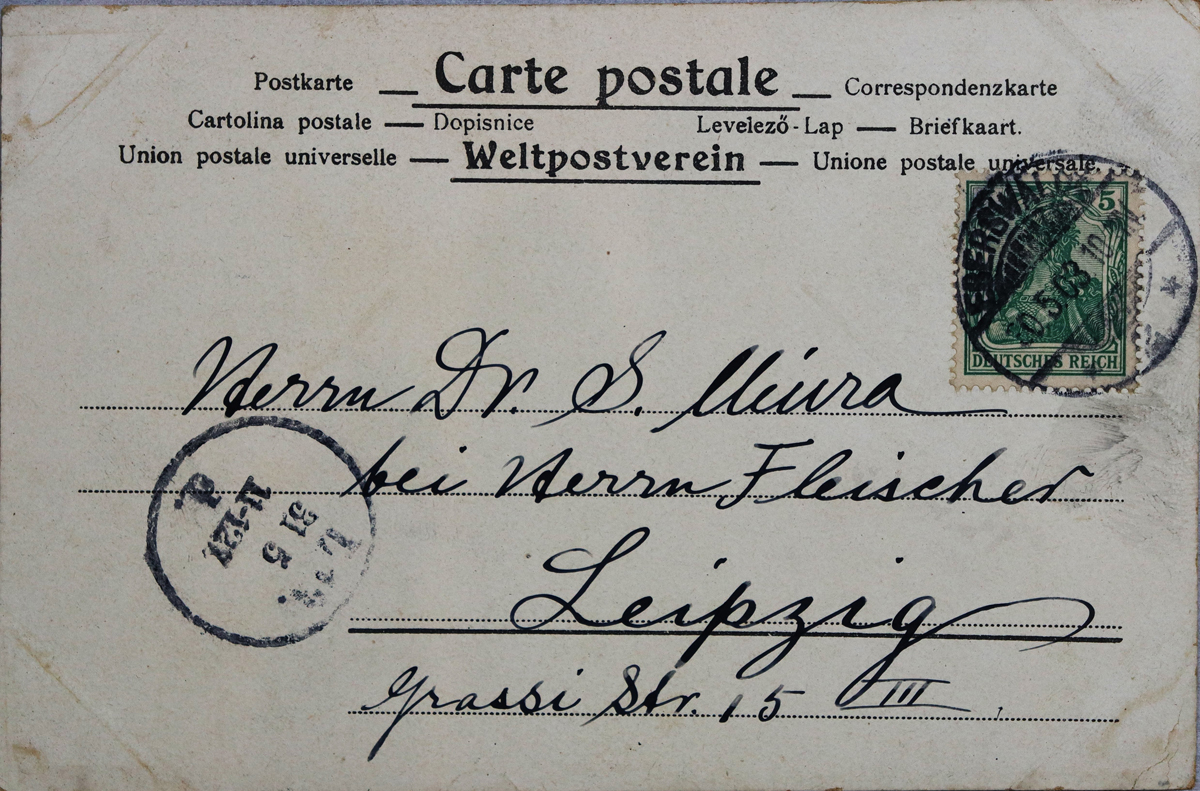 Postkarte — Carte postale — Correspondenzkarte
Cartolina postale — Dopisnice Levelező-Lap — Briefkaart.
Union postale universelle — Weltpostverein — Unione postale universale.
EBERSWALDE
5
30.5.03
10-11
DEUTSCHES REICH
Herrn Dr. S. Miura
bei Herrn Fleischer
Leipzig
Grassi Str. 15 III
31 5
11-12